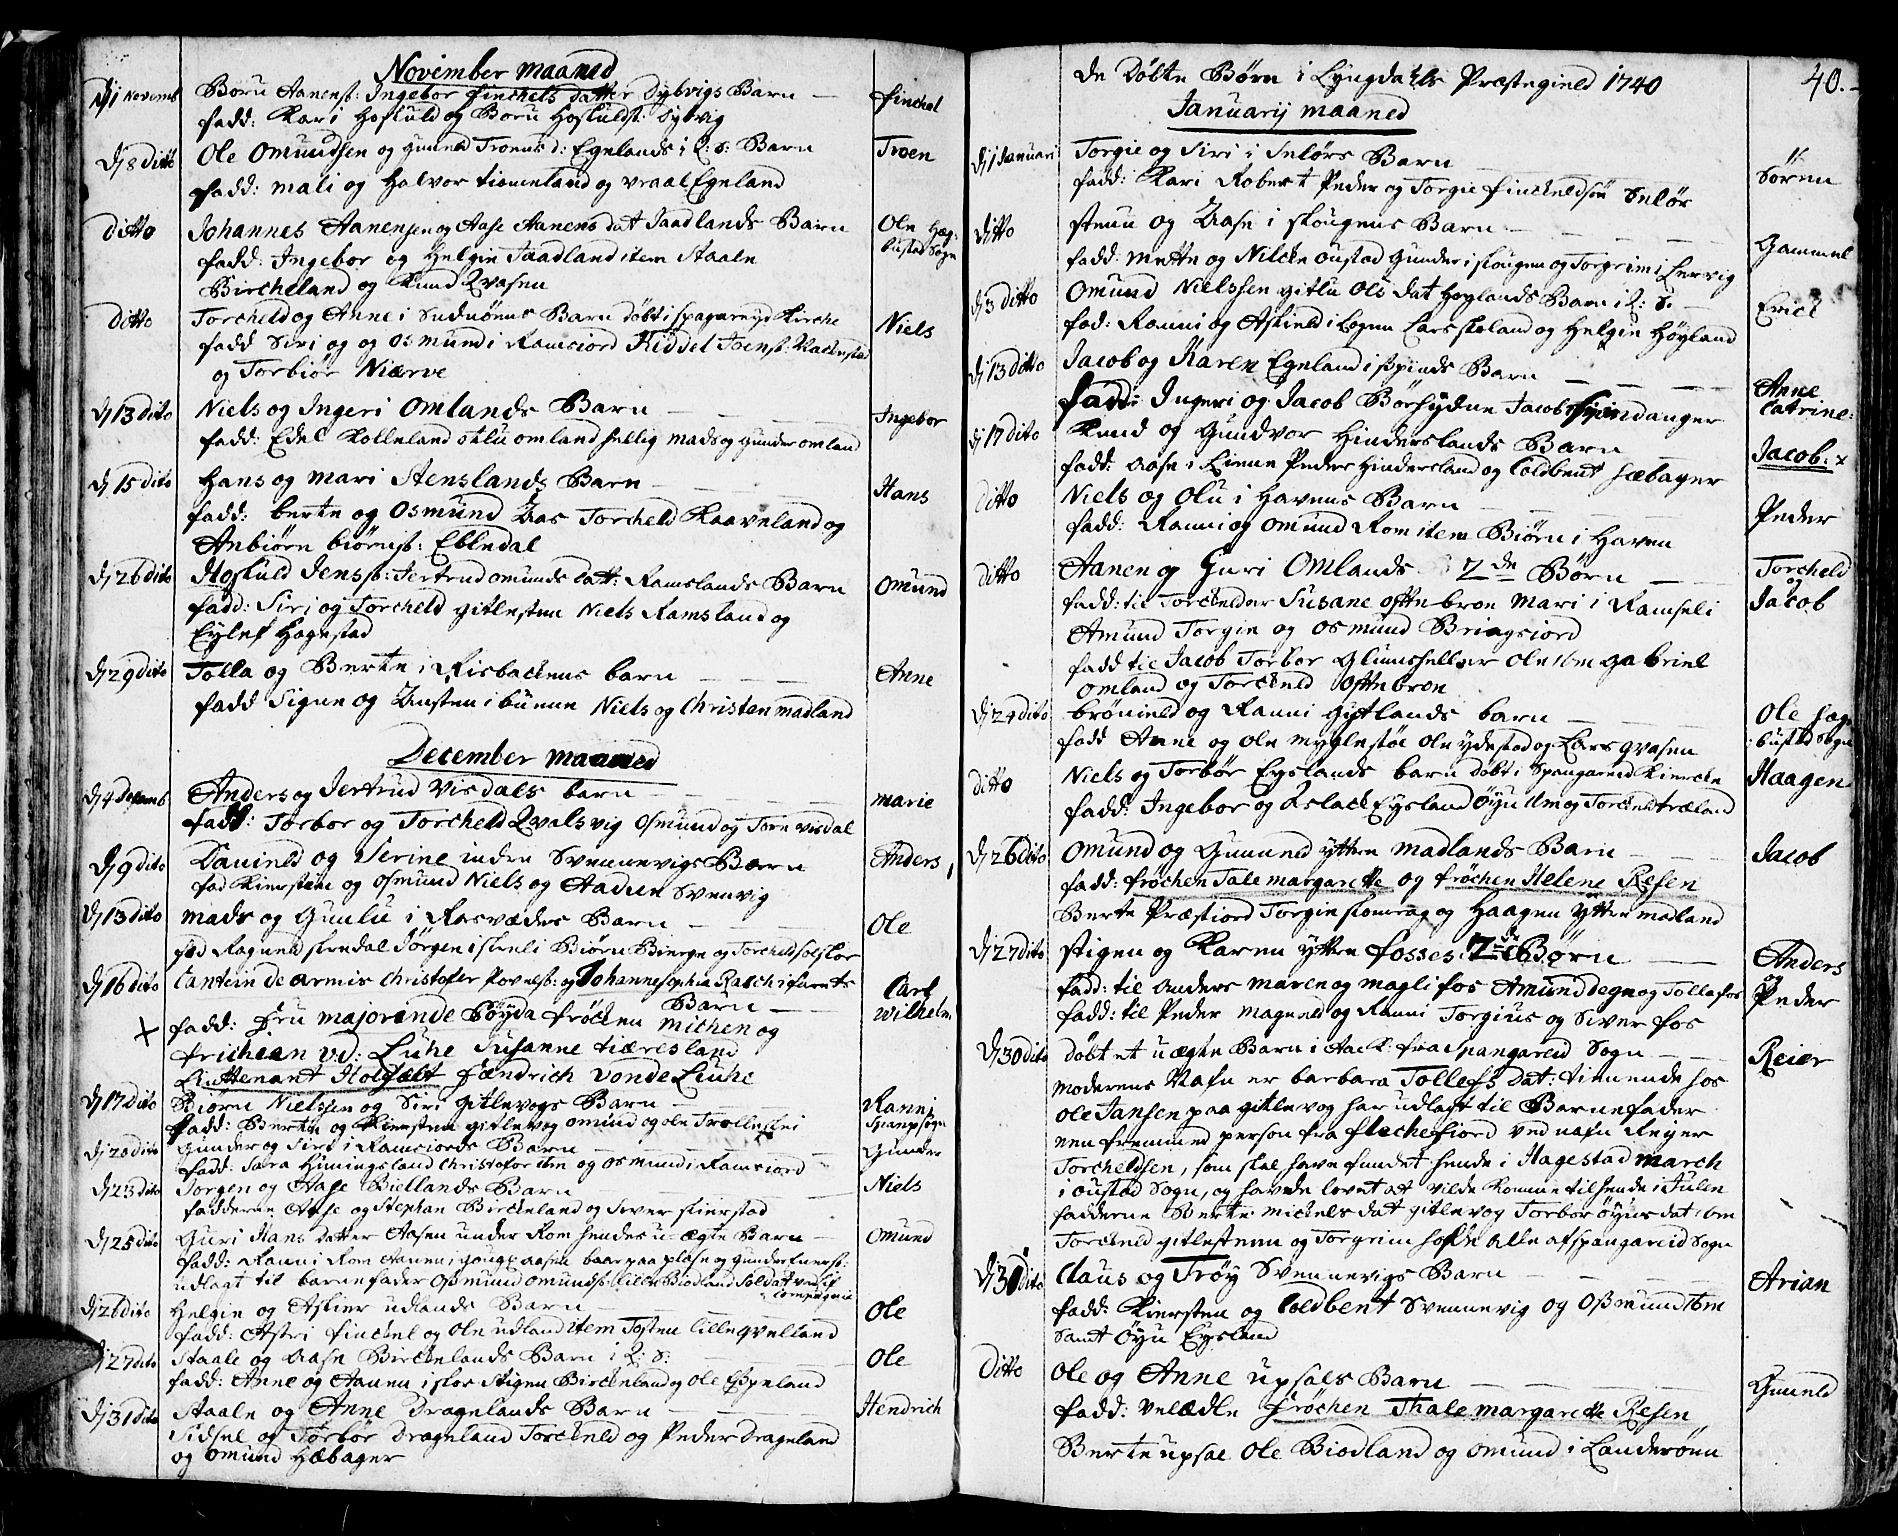 November maaned
Dj 1 Novemb Børu Aanens: Ingebor finchels datter Dybvigs Barn — finchel
fadd: Kari Hoskuld og Børu Hoskulds: Dybvig
Dj 8 Ditto Ole Omundsen og Gunild Troens d: Egelands i q: s: Barn Troen
fadd: mali og Halvor tiomeland og vraal Egeland
ditto Johannes Aanensen og Aase Aanens dat Jaadlands Barn Ole Hæg-
bustad Sogn
fadd: Ingebor og Helgie Jaadland item Staale
Bircheland og Knud Qvasen
ditto Torcheld og Anne i Sudnønes Barn døbt i spagareyd Kirche Niels
fadd Siri og og Osmund i Ramsiord Kiddel Joens:
og Torbiør Niærve
Dj 13 dito Niels og Ingeri Omlands Barn — Ingebor
fadd: Edel Kolleland omland hellig mads og gunder omland
Dj 15 dito Hans og mari Stenslands Barn — Hans
fadd: berte og Osmund Aas Torcheld Kaaveland og
Anbiørn biørns: Ebledal
Dj 26 dito Hoskuld Jenss: Jertrud omunds datt: Ramslands Barn Omund
fadd: Siri og Torcheld gitlesten Niels Ramsland og
Eylef Hagestad
Dj 29 dito Tolla og Berte i Risbackens barn — Anne
fadd Signe og Austen i bunne Niels og Christen madland
December maaned
Dj 4 Decemb Anders og Jertrud Visdals barn — marie
fadd: Torbor og Torcheld Qvalsvig Osmund og Tore visdal
Dj 9 dito Danield og Serine indre Svennevigs Barn Anders
fad Kiersten og Osmund Niels og Aadne Svenvig
Dj 13 dito mads og Gunlu i Rasvædes Barn — Ole
fad Ragnild skredal Jørgen i skreli Biørn Bierge og Torcheld
Dj 16 dito Cantein de armis Christofer Povels: og Johanne Sophia Rasch i farets Carl
Barn — Wilhelm
× fadd: fru majorinde Høyda frøcken michen og
frichean vd: Luhe Susanne tiæresland
Lieutenant Holfælt Fændrich vonde Luhe
Dj 17 dito Biørn Nielssen og Siri gitlevogs Barn — Ranni
fadd: Berte og Kiersten gitlevog omund og ole Trolleslei
Dj 20 dito Gunder og Siri i Ramsiords Barn Gunder
fadd: Sara Huningsland Christofer item og Osmund i Ramsiord
Dj 23 dito Torgen og Aase Biellands Barn Niels
fadderne Aase og Stephan Bircheland og Siver kierstad
Dj 25 dito Guri Hans datter Aasen under Rom hendes u-ægte Barn — Omund
fadd: Ranni Rom Aanen i aasen baar paa plase og Gunder
udlagt til barnefader Osmund omunds: lille Biodland Soldat
Compagnie
Dj 26 dito Helgie og Askier udlands Barn Ole
fadd: Astri finckel og Ole udland item Tosten lille qvelland
Dj 27 dito Staale og Aase Birckelands Barn i q: s: Ole
fadd: Anne og Aanen i skor Stigen Birckeland og Ole Espeland
Dj 31 dito Staale og Anne Drageland Barn — Hendrich
Sidsel og Torbor Drageland Torckeld og Peder Drageland
og omund Hæbager
De Døbte Børn i Lyngdahls Præstegield 1740 40.
Januarij maaned
Dj 1 Januari Torgie og Siri i Snlørs Barn Søren
fadd: Kari Robert Peder og Torgie finckeldsøn Snlør
Ditto Stenu og Aase i skougens Barn — Gammel
fadd: mette og Nilcke oustad Gunder i skougen og Torgrim i Hervig
Dj 3 ditto Omund Nielssen gitlu Ols dat Hoylands Barn i q: s: Erick
fad: Ranni og Askield i Legene Lars skeland og Helgie Høyland
Dj 13 ditto Jacob og Karen Egeland i spinds Barn — Anne
Catrine:
fadd: Ingeri og Jacob Børhydne Jacob Spindanger
Dj 17 dito Knud og Gundvor Hinderslands Barn — Jacob: ×
fadd: Aase i Liene Peder Hindersland og Coldbent Hæbager
ditto Niels og Olu i Havens Barn — Peder
fadd: Ranni og omund Rom item Biørn i Haven
ditto Aanen og Guri Omlands 2de Børn — Torcheld
og
Jacob
fadd: til Torckelder Susane ofte broe Mari i Ramseli
Amund Torgie og Osmund Bringsiord
fadd til Jacob Torbor Glumsheller ole item gabriel
omland og Torckeld Oftebroe
Dj 24 dito brønield og Ranni Gistlands barn — Ole Hæg-
bustad Sogn
fadd Anne og ole myglestøe ole ydestad og Lars qvasen
ditto Niels og Torbør Eyslands barn døbt i Spangareid Kiercke Haagen
fadd: Ingebor og Aslack Eysland Øyu item og Torckeld træland
Dj 26 dito Omund og Gunneld ytter madlands Barn — Jacob
fadd: frøchen Tale margarette og frøchen Helene Resen
Berte Præstiord Torgie skomrag og Haagen Ytter madland
Dj 27 dito Stigen og Karen ytter fosses 2de Børn — Anders
og
Peder
fadd: til Anders maren og magli fos Amund degn og Tolla fos
fadd: til Peder magneld og Ranni Torgius og Siver fos
Dj 30 dito døbt et uægte Barn i Aa K: fra Spangareid Sogn — Reier
moderens Nafn er barbara Tollefs Dat: tienende hos
ole Jansen paa gitlevog har udlagt til Barnefader
een fremmed person fra flechefiord ved nafn Reyer
Torcheldsen, som skal have fundet hende i Hagestad march
i oustad Sogn, og havde lovet at vilde komme til hende i Julen
fadderne Berte Mickels dat gitlevog Torbor Øyus dat: om
Torckeld gitlesteen og Torgrim alle af Spangareid Sogn
Dj 30 dito Claus og Trøy Svennevigs Barn — Arian
fadd: Kiersten og Coldbent Svennevig og Osmund item
samt Øyu Eysland
Ditto Ole og Anne upsals Barn — Guneld
fadd: velædle frøchen Thale margarette Resen
Berte upsal Ole Biodland og Omund i Landerøen